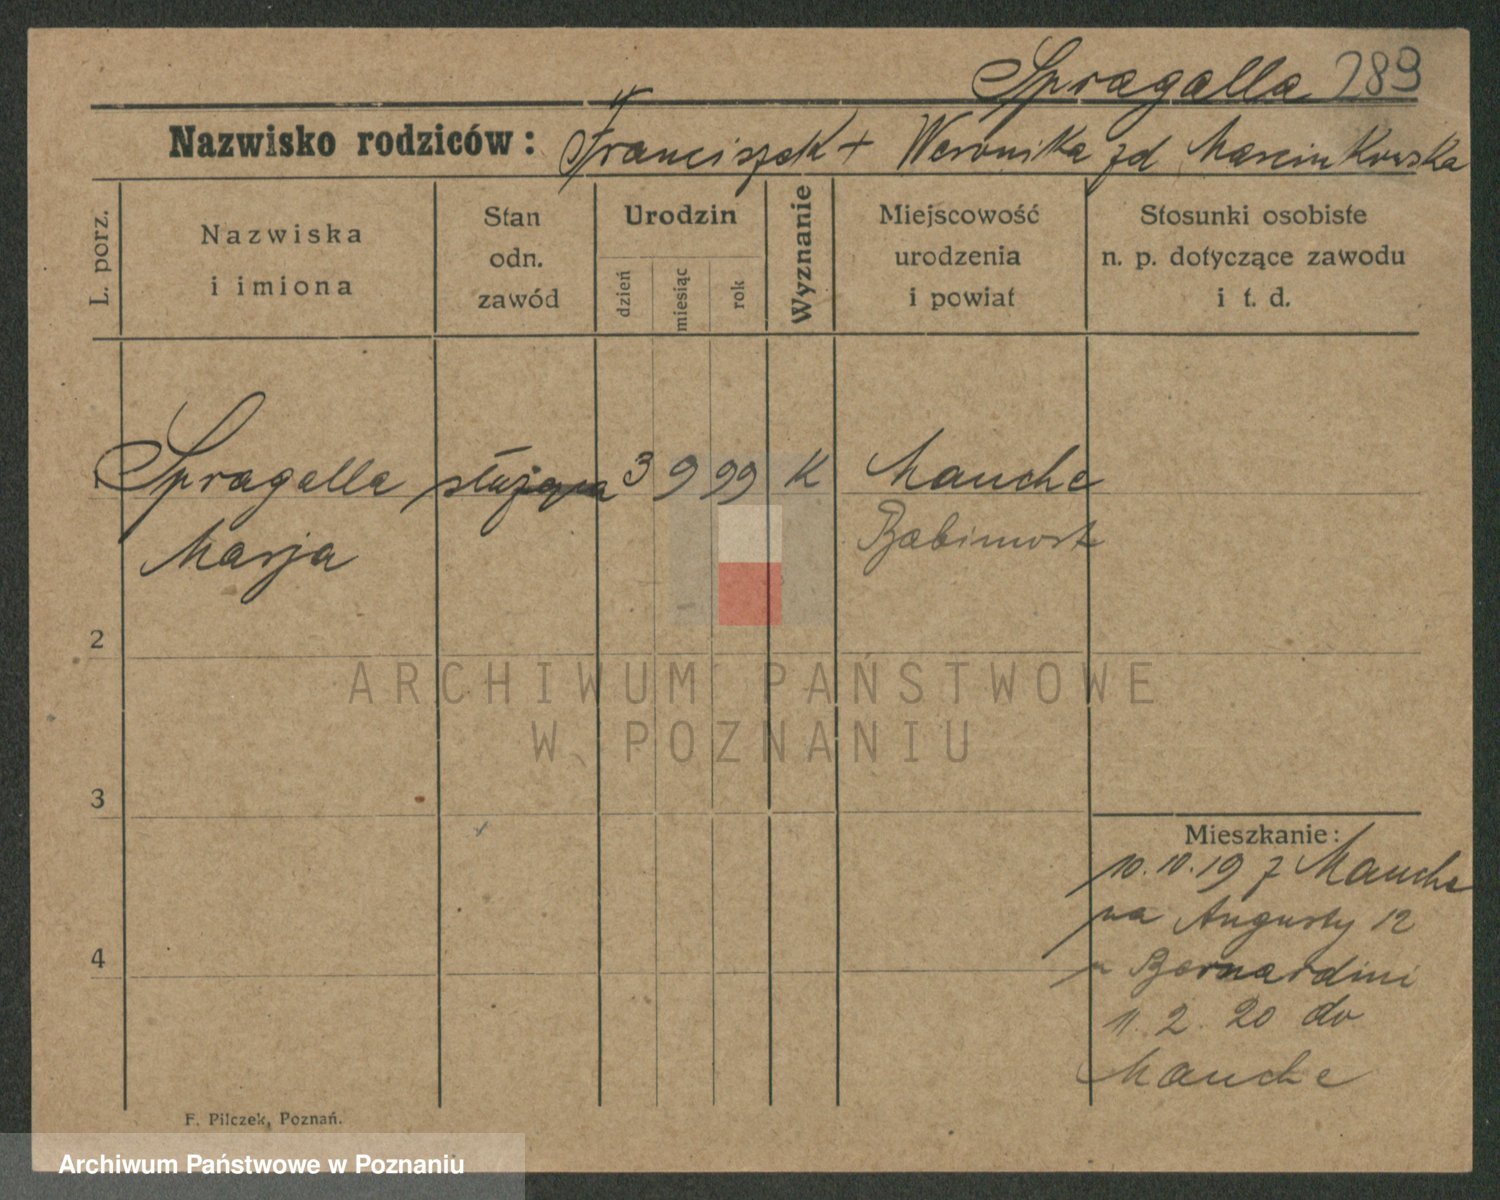 Spragalla 289
Nazwisko rodziców: Franciszek + Weronika zd Marcinkowska
L. porz.
Nazwiska
i imiona
Stan
odn.
zawód
Urodzin
dzień
miesiąc
rok
Wyznanie
Miejscowość
urodzenia
i powiat
Stosunki osobiste
n. p. dotyczące zawodu
i t. d.
Spragalla służąca 3 9 99 K Mauche
Marja Babimost
2
3
4
Mieszkanie:
10.10.19 z Mauche
na Augusty 12
u Bernardini
11.2.20 do
Mauche
F. Pilczek, Poznań.
ARCHIWUM PAŃSTWOWE
W POZNANIU
Archiwum Państwowe w Poznaniu